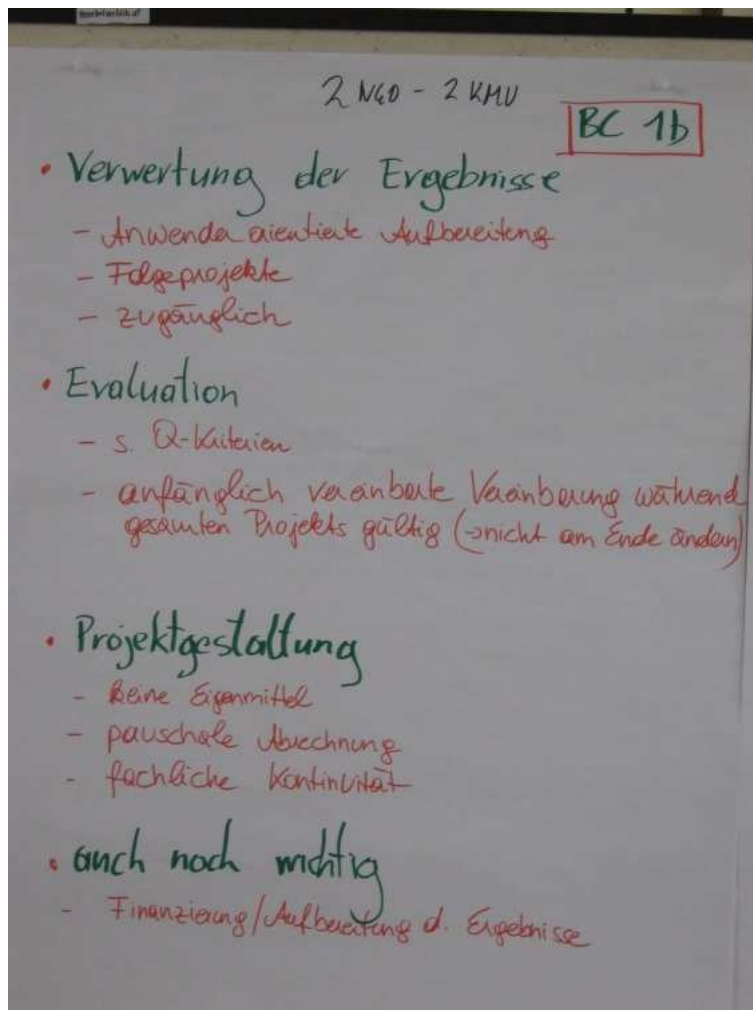 2 NGO - 2 KMU
BC 1b
• Verwertung der Ergebnisse
- Anwenderorientierte Aufbereitung
- Folgeprojekte
- zugänglich
• Evaluation
- s. Q-Kriterien
- anfänglich vereinbarte Vereinbarung während
gesamten Projekts gültig (→nicht am Ende ändern)
• Projektgestaltung
- keine Eigenmittel
- pauschale Abrechnung
- fachliche Kontinuität
• auch noch wichtig
- Finanzierung/Aufbereitung d. Ergebnisse